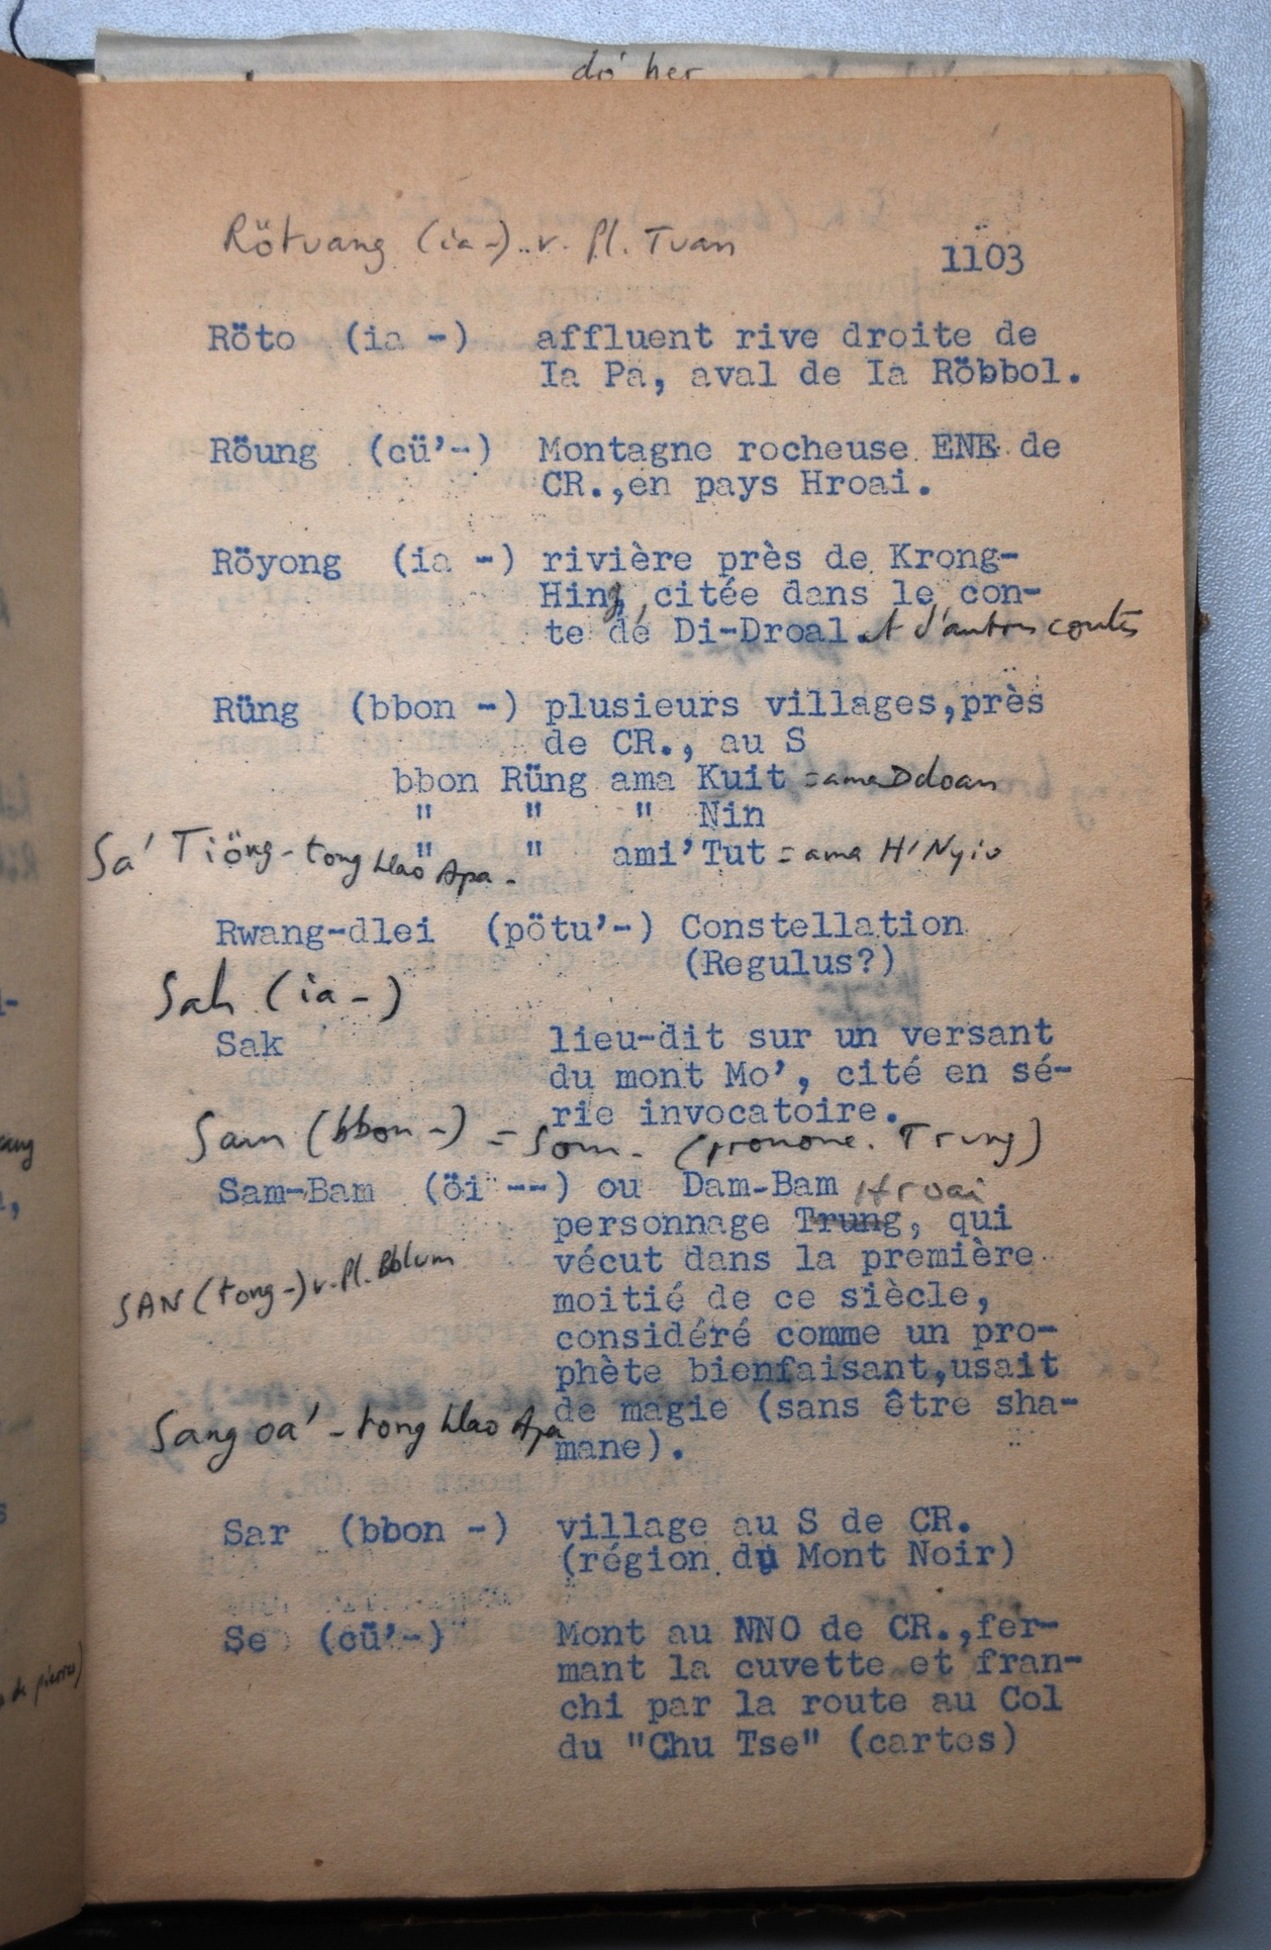 dơ' her
Rötuang (ia -) .. v. Pl. Tuan
1103
Röto (ia -) affluent rive droite de
Ia Pa, aval de Ia Röbbol.
Röung (cü'-) Montagne rocheuse ENE de
CR.,en pays Hroai.
Röyong (ia -) rivière près de Krong-
Hing, citée dans le con-
te de Di-Droal. et d'autres contes
Rüng (bbon -) plusieurs villages,près
de CR., au S
bbon Rüng ama Kuit = ama Ddoan
" " " Nin
" " ami'Tut = ama H'Nyiu
Sa' Tiöng - tong Hlao Apa -
Rwang-dlei (pötu'-) Constellation
(Regulus?)
Sah (ia -)
Sak lieu-dit sur un versant
du mont Mo', cité en sé-
rie invocatoire.
Sam (bbon -) = Som - (prononc. Trung)
Sam-Bam (öi --) ou Dam-Bam Hroai
personnage Trung, qui
vécut dans la première
SAN (tong -) v. Pl. Bblum
moitié de ce siècle,
considéré comme un pro-
phète bienfaisant,usait
de magie (sans être sha-
Sang oa' - tong Hlao Apa
mane).
Sar (bbon -) village au S de CR.
(région du Mont Noir)
Se (cü'-) Mont au NNO de CR.,fer-
mant la cuvette et fran-
chi par la route au Col
du "Chu Tse" (cartes)